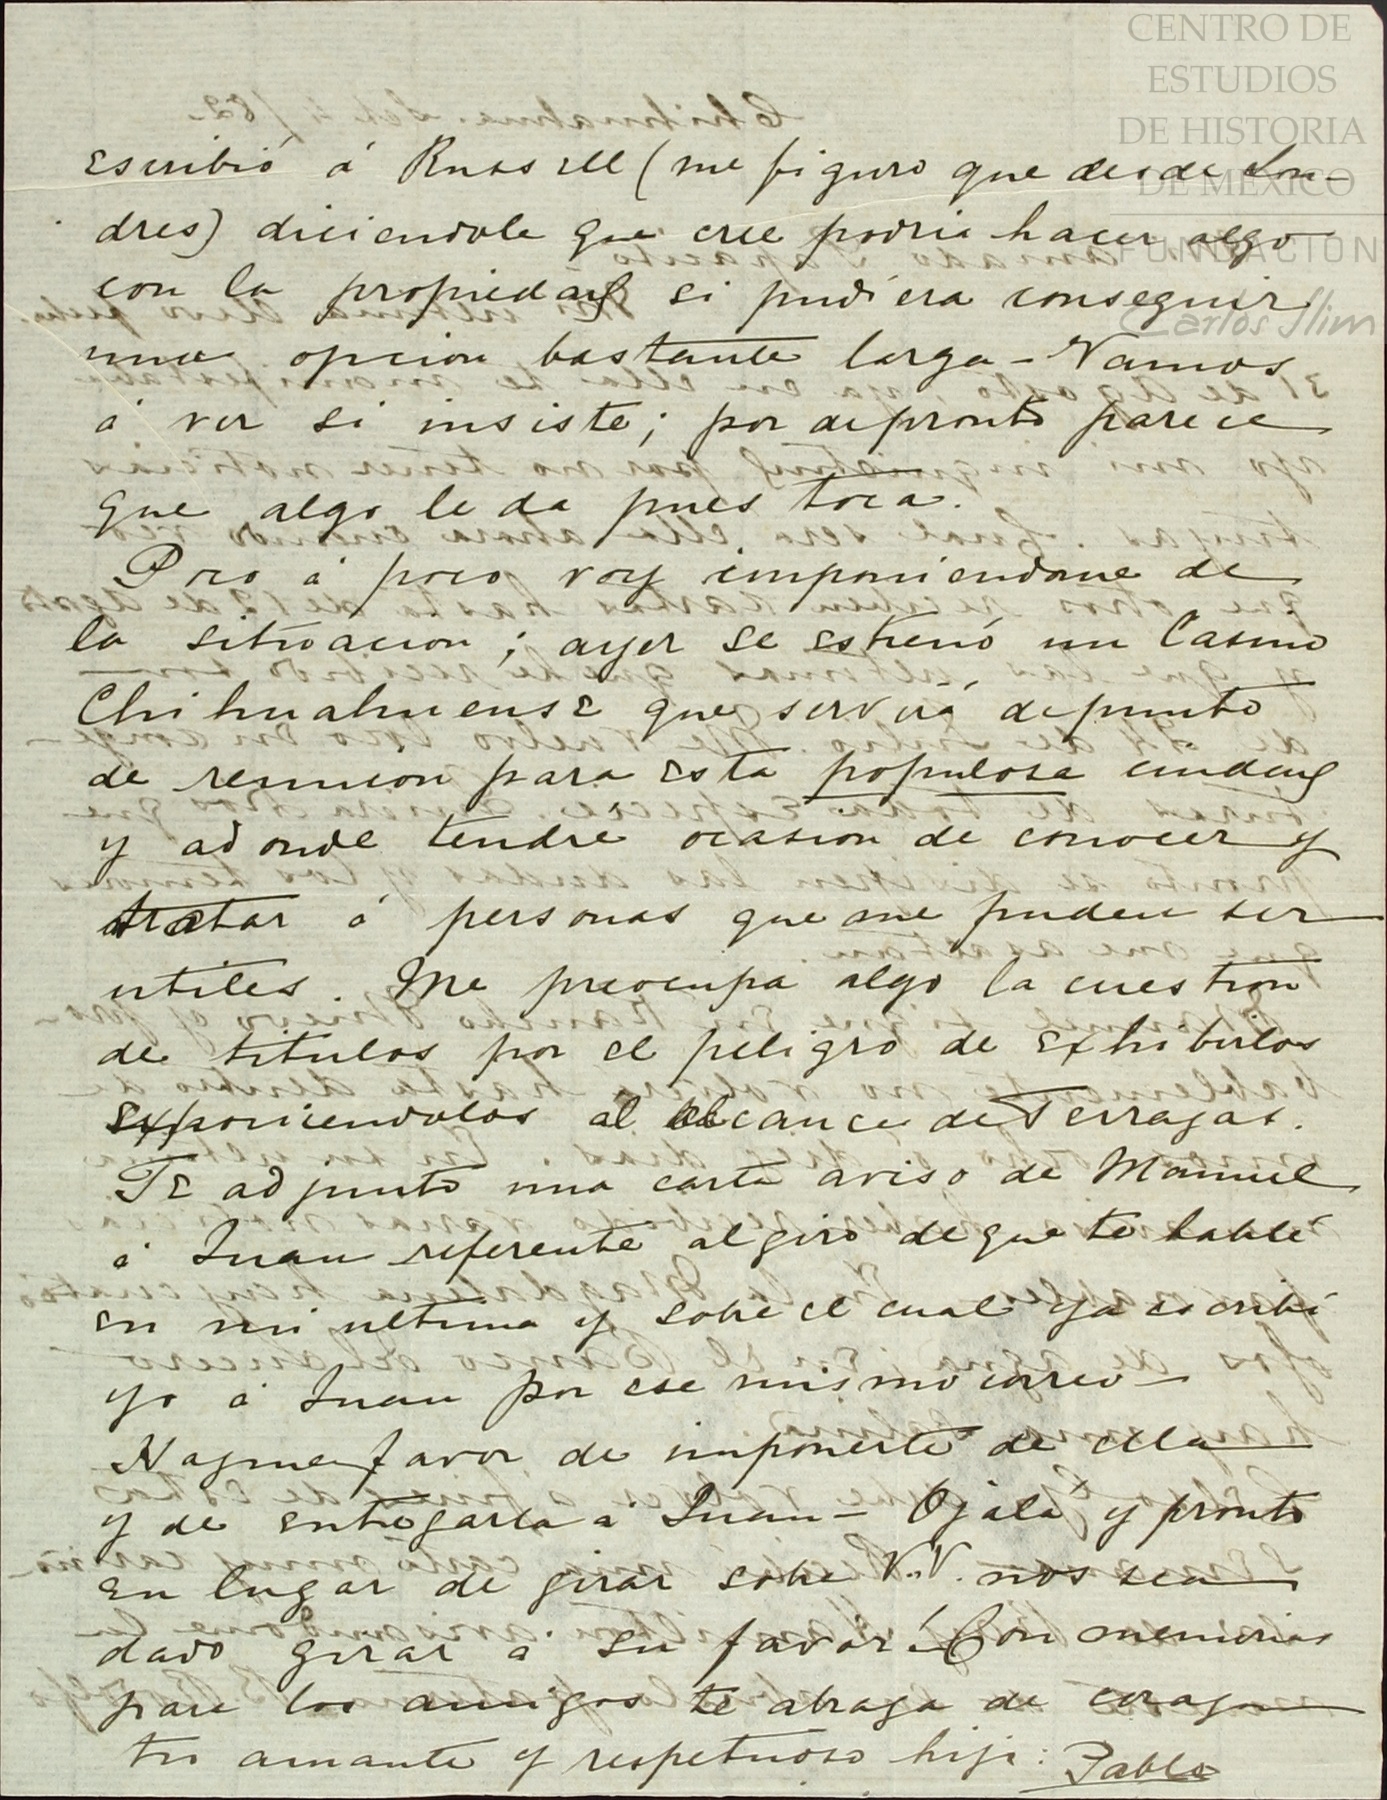 CENTRO DE
ESTUDIOS
DE HISTORIA
DE MÉXICO
FUNDACIÓN
Carlos Slim
escribió á Russell (me figuro que desde Lon-
dres) diciendole que cree podria hacer algo
con la propiedad si pudiera conseguir
una opcion bastante larga - Vamos
á ver si insiste; por de pronto parece
que algo le da pues toca.
Poco á poco voy imponiendome de
la situacion; ayer se estrenó un Casino
Chihuahuense que servirá de punto
de reunion para esta populosa ciudad
y adonde tendré ocasion de conocer y
tratar á personas que me pueden ser
utiles. Me preocupa algo la cuestion
de titulos por el peligro de exhibirlos
exponiendolos al alcance de Terrazas.
Te adjunto una carta aviso de Manuel
á Juan referente al giro de que te hablé
en mi ultima y sobre el cual ya escribí
yo á Juan por ese mismo correo -
Hazme favor de imponerte de ella
y de entregarla á Juan - Ojalá y pronto
en lugar de girar sobre V.V. nos sea
dado girar á su favor! Con memorias
para los amigos te abraza de corazon
tu amante y respetuoso hijo: Pablo